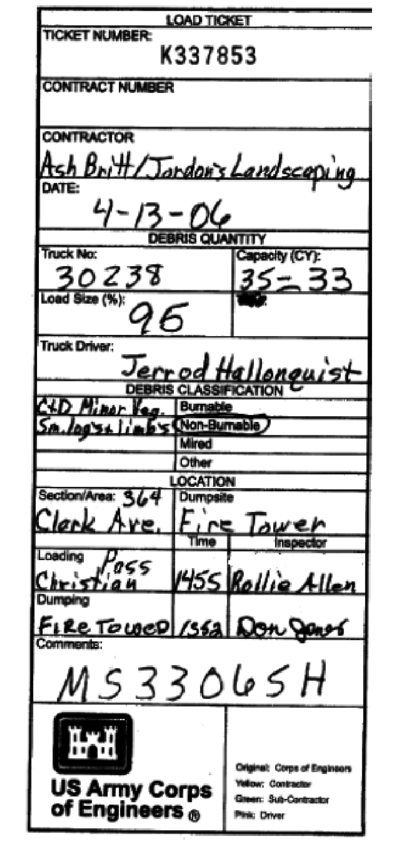 LOAD TICKET
TICKET NUMBER:
K337853
CONTRACT NUMBER
CONTRACTOR
Ash Britt/Jordon's Landscaping
DATE:
4-13-06
DEBRIS QUANTITY
Truck No: Capacity (CY):
30238 35= 33
Load Size (%):
95
Truck Driver:
Jerrod Hallonquist
DEBRIS CLASSIFICATION
C&D Minor Veg. Burnable
Sm. log's + limb's Non-Burnable
Mired
Other
LOCATION
Section/Area: 364 Dumpsite
Clark Ave. Fire Tower
Time Inspector
Loading Pass
Christian 1455 Rollie Allen
Dumping
FIRE TOWED Don Jones
Comments:
MS33065H
US Army Corps
of Engineers ®
Original: Corps of Engineers
Yellow: Contractor
Green: Sub-Contractor
Pink: Driver